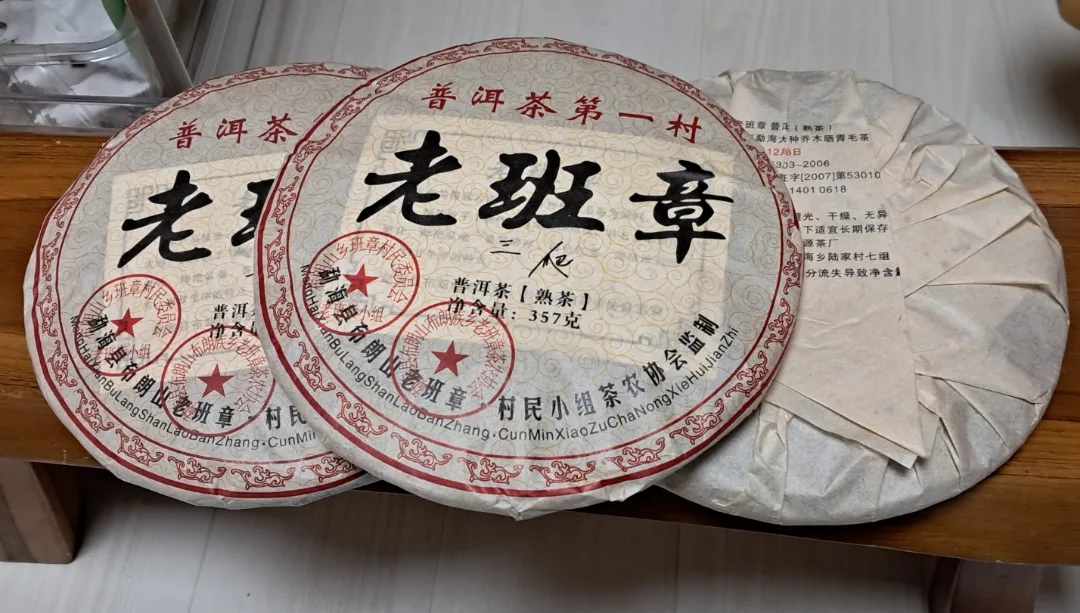 普洱茶
老
普洱茶
净含量
勐海县布朗山老班章·村民
BuLangShanLaoBanZhang·CunMin
普洱茶第一村
老班章
三爬
普洱茶【熟茶】
净含量：357克
布朗山老班章·村民小组茶农协会监制
BuLangShanLaoBanZhang·CunMinXiaoZuChaNongXieHuiJianZhi
班章 普洱（熟茶）
勐海大种乔木晒青毛茶
12/8日
303-2006
年字[2007]第53010
1401 0618
光、干燥、无异
下适宜长期保存
源茶厂
海乡陆家村七组
分流失导致净含量